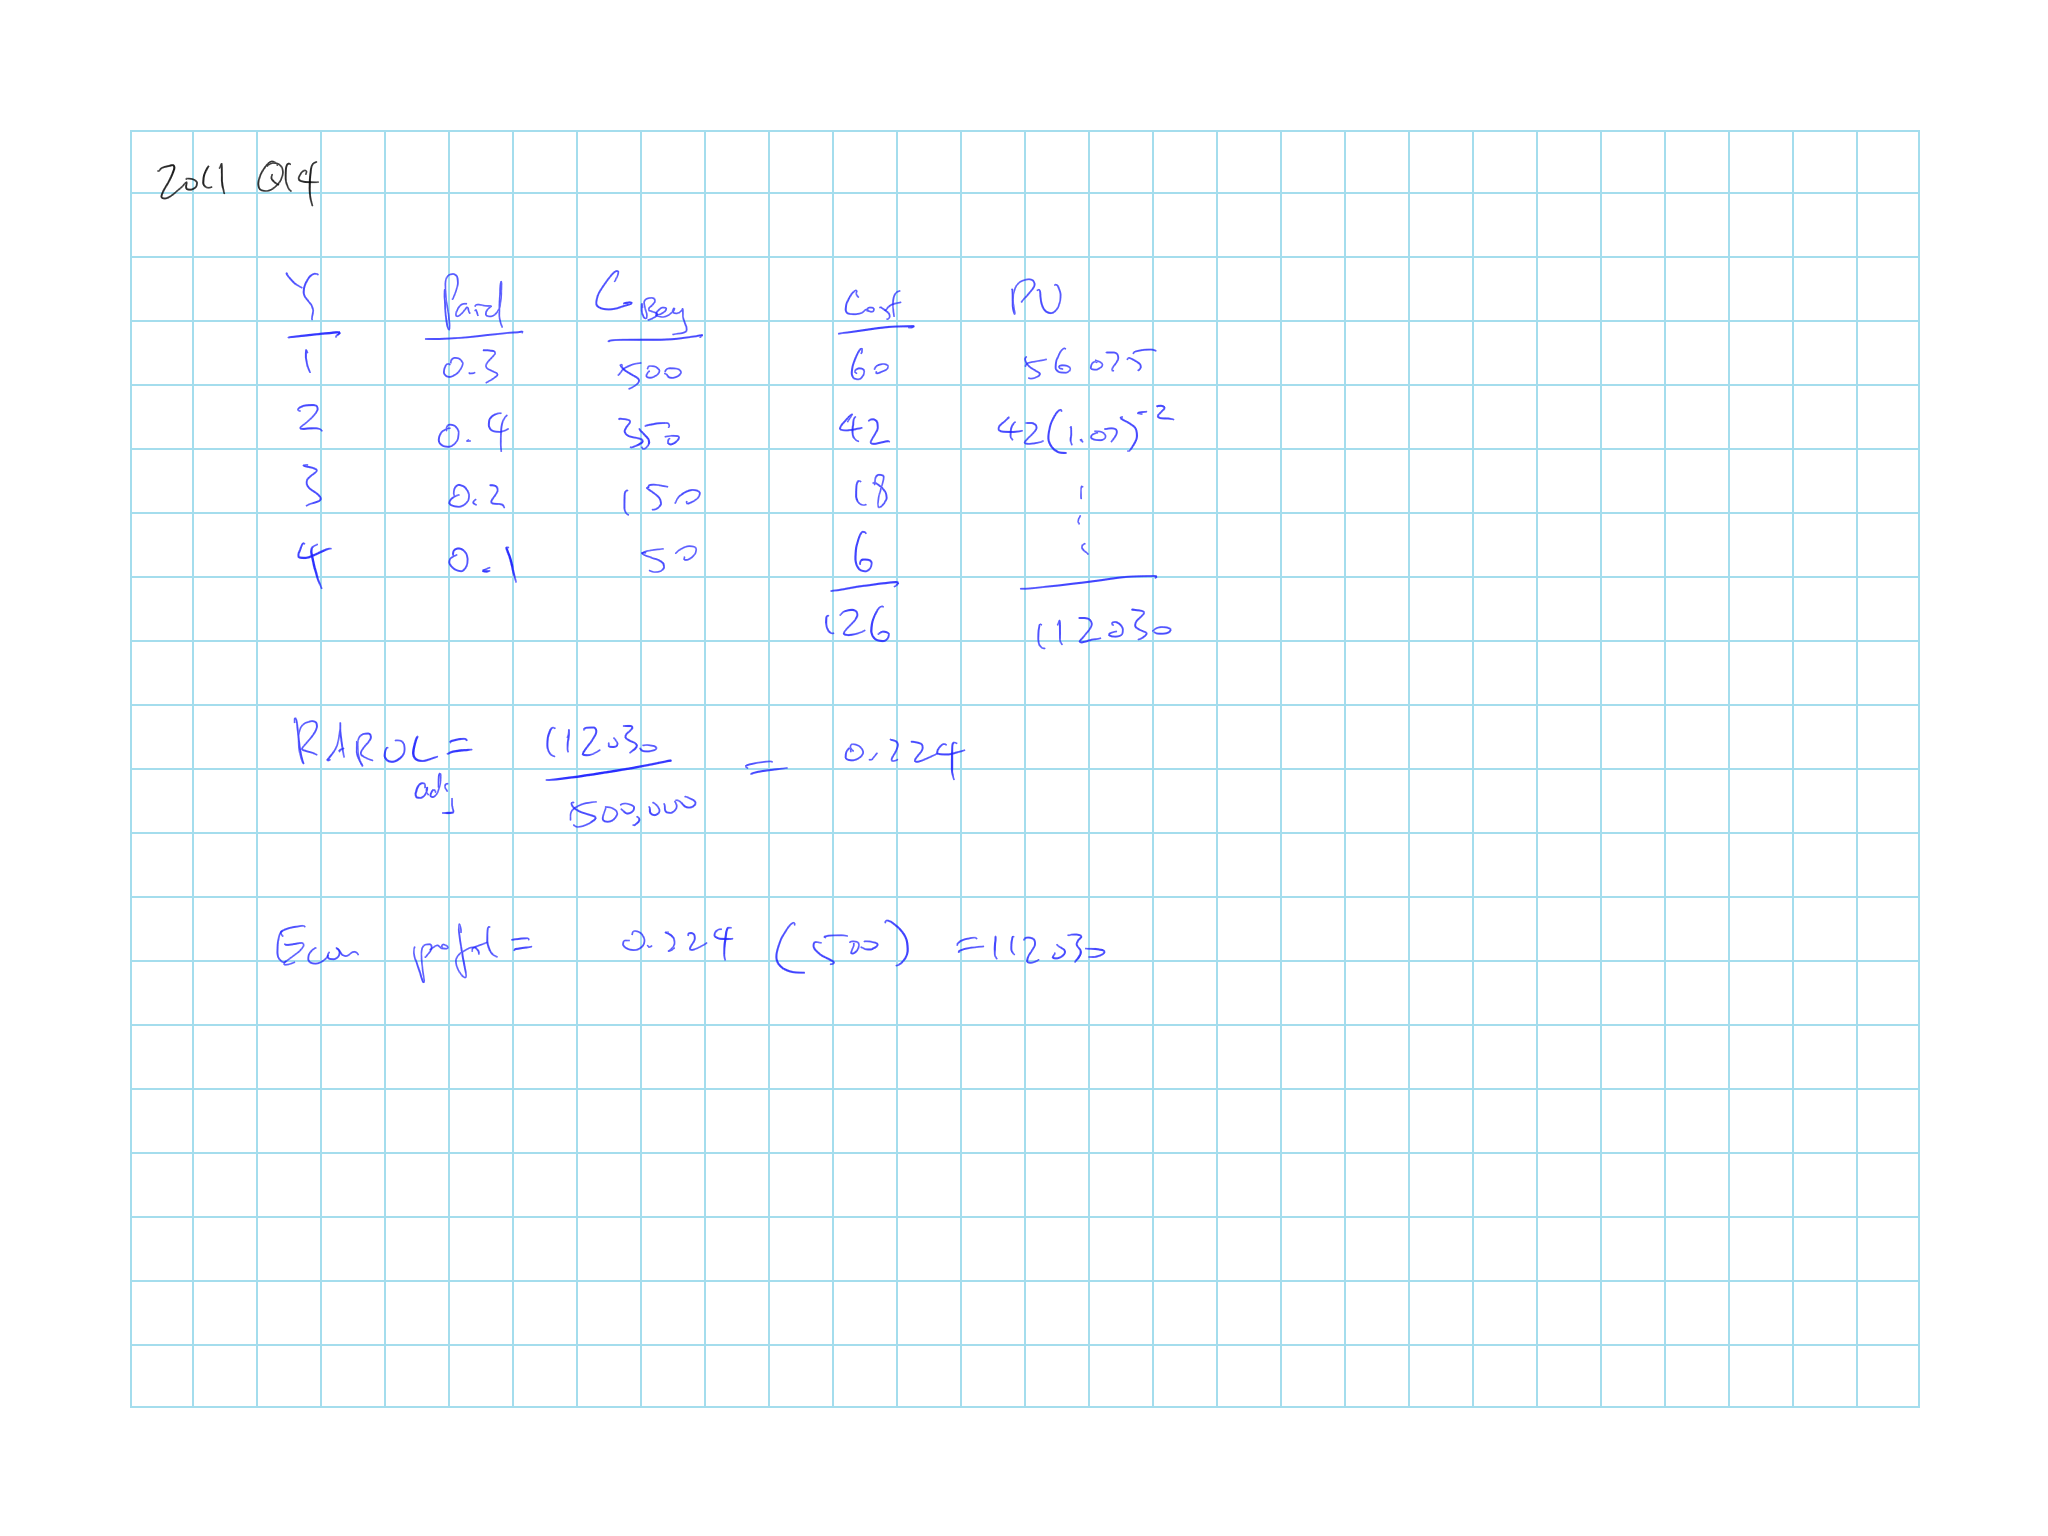 2011 Q14
Y Paid C Beg Cost PV
1 0.3 500 60 56075
2 0.4 350 42 42(1.07)^-2
3 0.2 150 18
4 0.1 50 6
126 112030
RAROC adj = 112030 / 500,000 = 0.224
Econ profit = 0.224 (500) = 112030